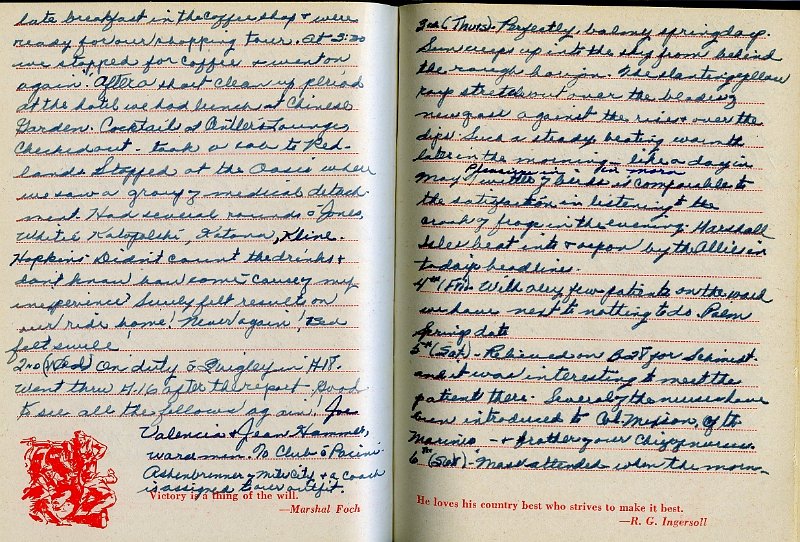 late breakfast in the coffee shop & were
ready for our shopping tour. At 3:30
we stopped for coffee & went on
again! After a short clean up period
at the hotel we had lunch at Chinese
Garden. Cocktail at Butler's Lounge,
Checked out - took a cab to Red-
lands Stopped at the Oasis where
we saw a group of medical detach-
ment. Had several rounds c̄ Jones,
White Katona, Kline.
Hopkins. Didn't count the drinks &
don't know how come - causey my
inexperience! Surely felt results on
our ride home! Never again! Bed
felt swell!
2nd (Wed) On duty c̄ Quigley in H18.
Went thru H-16 after the report - Good
to see all the fellows again! Joe
Valencia & Jean Hammer,
wardman. To Club c̄
Ashenbrenner & a coach
is assigned to our outfit.
Victory is a thing of the will.
—Marshal Foch
(Thurs). Perfectly balmy spring day.
Sun creeps up into the sky from behind
the rough horizon. The slanting yellow
rays stretch out over the
against the rises & over the
dips. Such a steady beating warmth
later in the morning - like a day in
May! of birds in morn is comparable to
the satisfaction in listening to the
croak of frogs in the evening. Marshall
Isles beat into & upon by the Allies in
today's headlines.
4th (Fri) - With very few patients on the ward
we have next to nothing to do. Palm
Spring date
5th (Sat) - Relieved on B28 for
and it was interesting to meet the
patients there. Several of the nurses have
been introduced to Col. of the
Marines - & brother of our Chief nurse.
6th - Mass attended when the morn-
He loves his country best who strives to make it best.
—R. G. Ingersoll